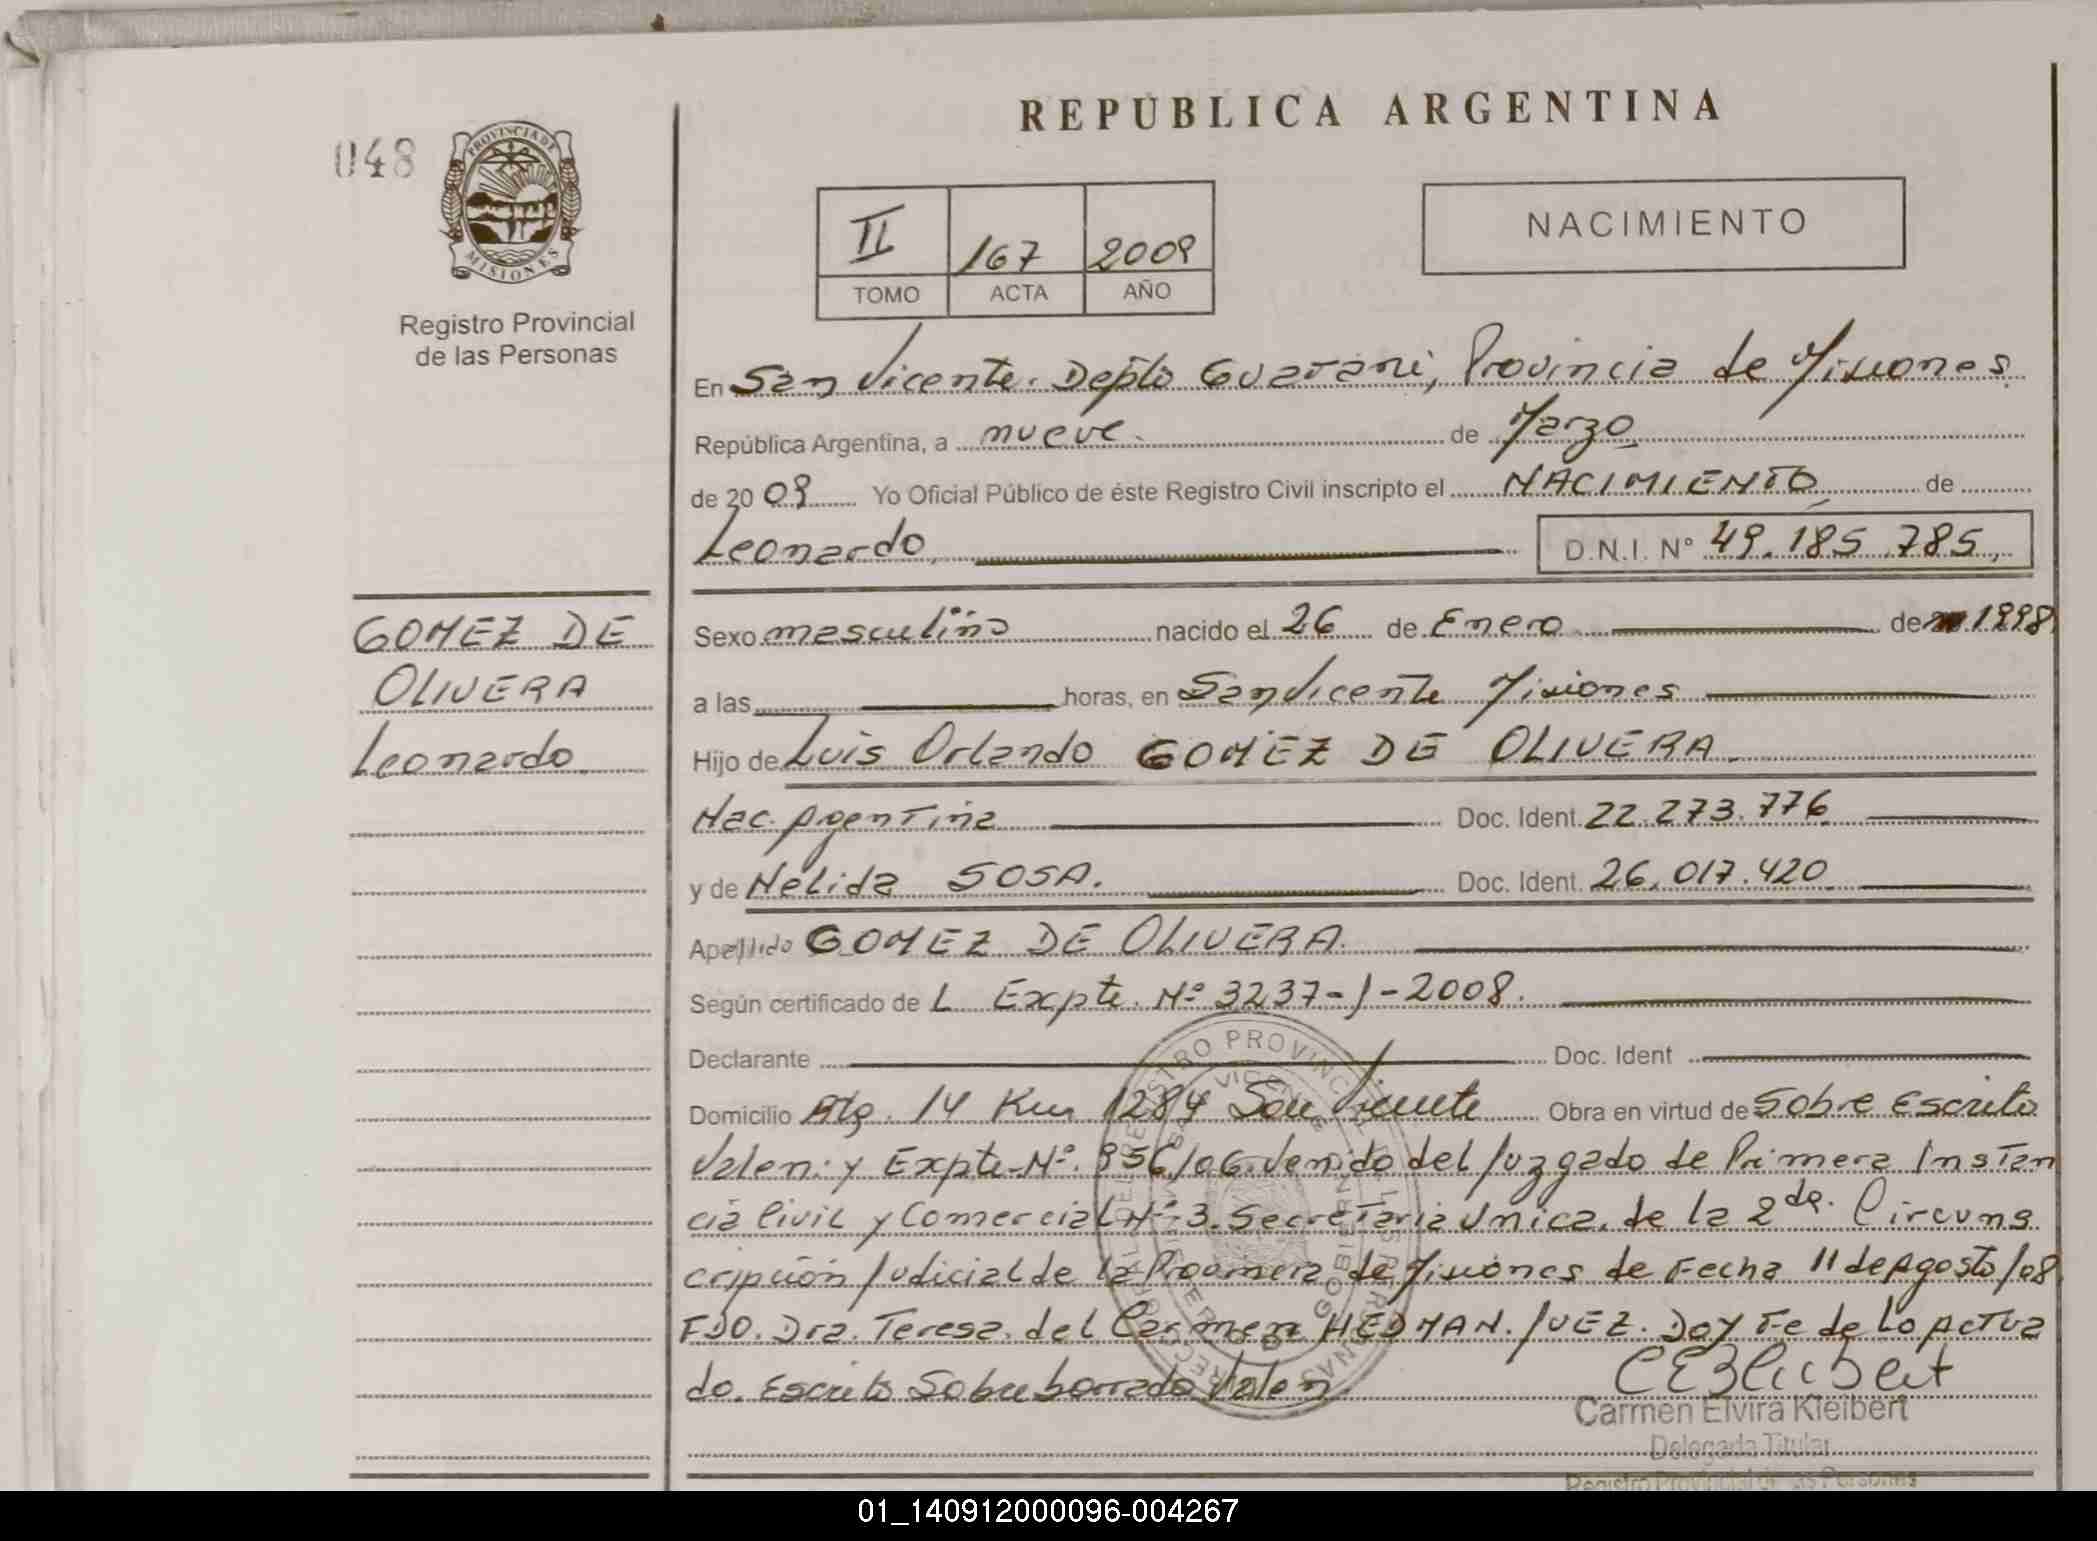 REPUBLICA ARGENTINA
048
PROVINCIA DE
MISIONES
Registro Provincial
de las Personas
II 167 2009
TOMO ACTA AÑO
NACIMIENTO
En San Vicente. Depto Guarani, Provincia de Misiones
República Argentina, a nueve. de Marzo
de 2009 Yo Oficial Público de éste Registro Civil inscripto el NACIMIENTO de
Leonardo, D.N.I. N° 49.185.785,
GOMEZ DE
OLIVERA
Leonardo
Sexo masculino nacido el 26 de Enero de 1998
a las horas, en San Vicente Misiones
Hijo de Luis Orlando GOMEZ DE OLIVERA
Nac. Agentina Doc. Ident. 22.273.776
y de Nelida SOSA. Doc. Ident. 26.017.420
Apellido GOMEZ DE OLIVERA.
Según certificado de L Expte. N° 3237-J-2008.
Declarante Doc. Ident
Domicilio 14 Km 1284 San Vicente Obra en virtud de Sobre Escrito
Valen: y Expte. N°. 956/06. Venido del Juzgado de Primera Instan
cia Civil y Comercial N° 3. Secretaria Unica, de la 2da. Circuns
cripción Judicial de la Provincia de Misiones de Fecha 11 de Agosto/08
FDO. Dra. Teresa del Carmen HEDMAN. JUEZ. Doy Fe de Lo Actua
do. Escrito Sobre borrado Valen
Carmen Elvira Kleibert
Delegada Titular
Registro Provincial de las Personas
01_140912000096-004267